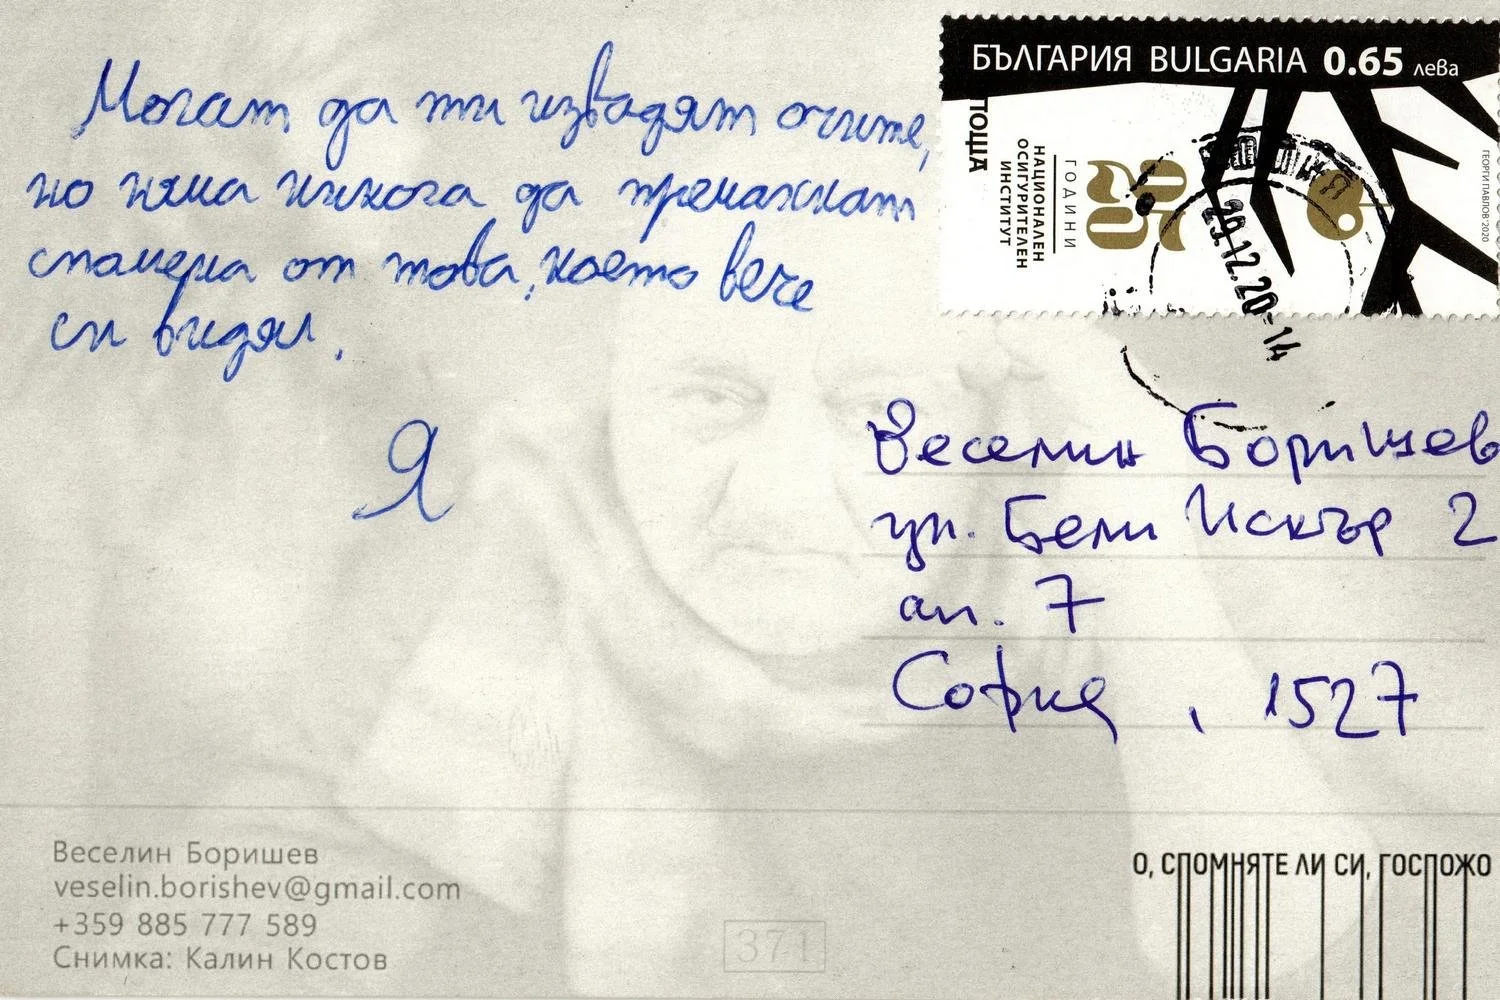 Могат да ти извадят очите,
но няма никога да премахнат
спомена от това, което вече
си видял.
Я
БЪЛГАРИЯ BULGARIA 0.65 лева
ПОЩА
НАЦИОНАЛЕН
ОСИГУРИТЕЛЕН
ИНСТИТУТ
ГОДИНИ
25
ГЕОРГИ ПАВЛОВ '2020
29.12.20-14
Веселин Боришев
ул. Бели Искър 2
ап. 7
София, 1527
Веселин Боришев
veselin.borishev@gmail.com
+359 885 777 589
Снимка: Калин Костов
371
О, СПОМНЯТЕ ЛИ СИ, ГОСПОЖО